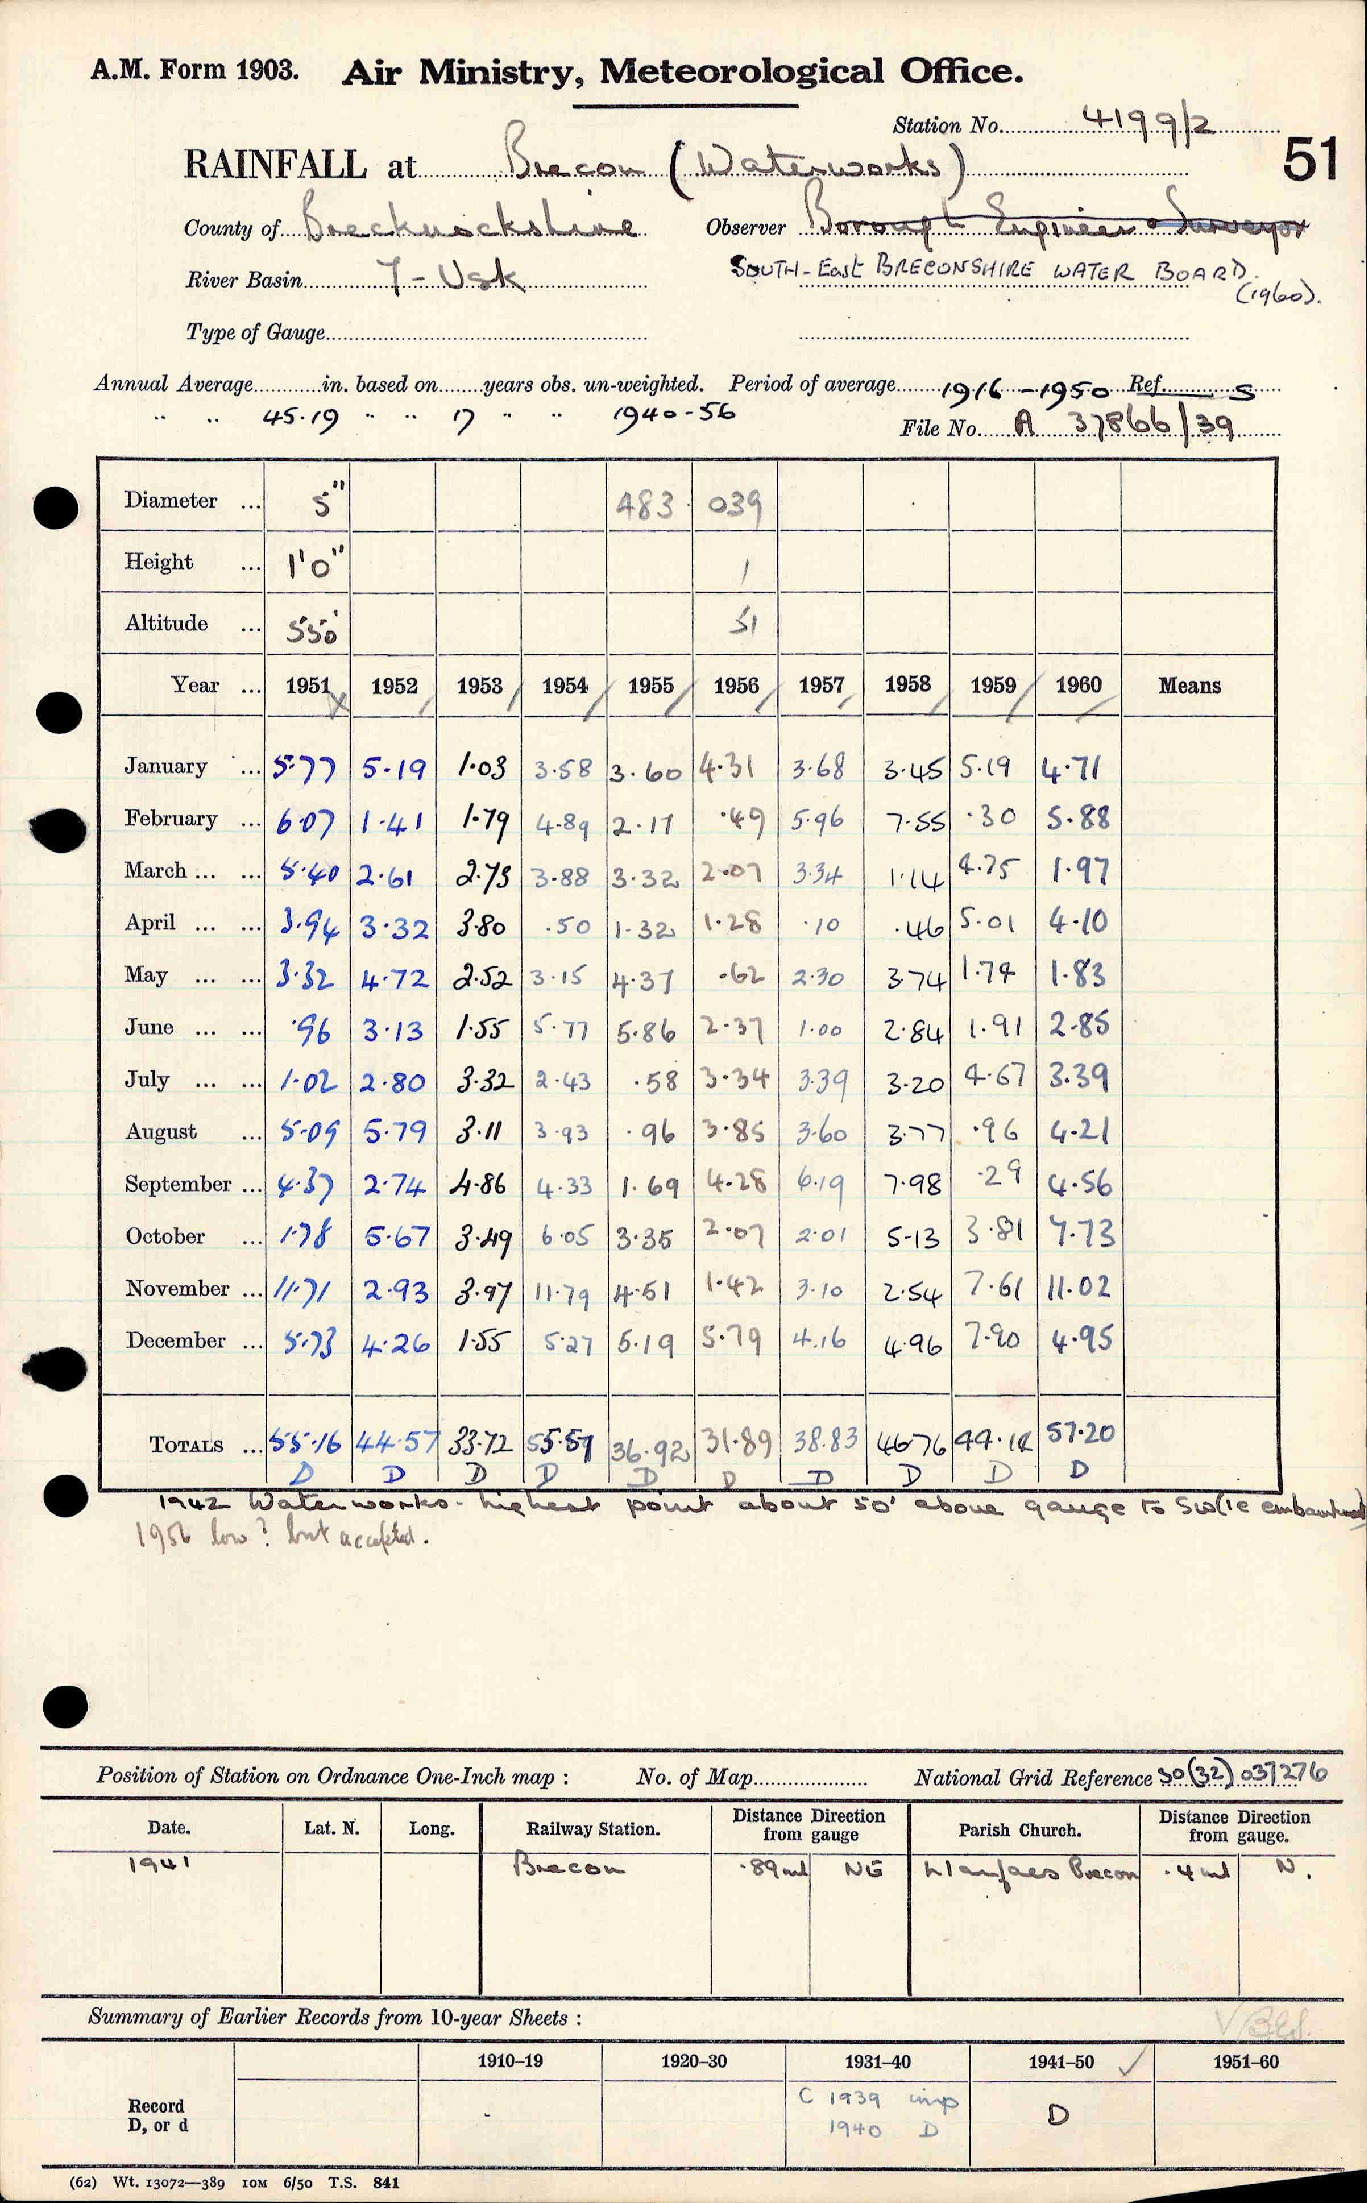 A.M. Form 1903. Air Ministry, Meteorological Office.
Station No. 4199/2
51
RAINFALL at Brecon (Waterworks)
County of Brecknockshire Observer Borough Engineer & Surveyor
River Basin 7 - Usk SOUTH-East BRECONSHIRE WATER BOARD. (1960).
Type of Gauge
Annual Average in. based on years obs. un-weighted. Period of average 1916-1950 Ref. S
" " 45.19 " " 17 " " 1940-56 File No. A 37866/39
Diameter ... 5" 483 039
Height ... 1'0" 1
Altitude ... 550' 51
Year ... 1951 1952 1953 1954 1955 1956 1957 1958 1959 1960 Means
January ... 5.77 5.19 1.03 3.58 3.60 4.31 3.68 3.45 5.19 4.71
February ... 6.07 1.41 1.79 4.89 2.17 .49 5.96 7.55 .30 5.88
March ... ... 5.40 2.61 2.73 3.88 3.32 2.07 3.34 1.14 4.75 1.97
April ... ... 3.94 3.32 3.80 .50 1.32 1.28 .10 .46 5.01 4.10
May ... ... 3.32 4.72 2.52 3.15 4.37 .62 2.30 3.74 1.74 1.83
June ... ... .96 3.13 1.55 5.77 5.86 2.37 1.00 2.84 1.91 2.85
July ... ... 1.02 2.80 3.32 2.43 .58 3.34 3.39 3.20 4.67 3.39
August ... 5.09 5.79 3.11 3.93 .96 3.85 3.60 3.77 .96 4.21
September ... 4.37 2.74 4.86 4.33 1.69 4.28 6.19 7.98 .29 4.56
October ... 1.78 5.67 3.49 6.05 3.35 2.07 2.01 5.13 3.81 7.73
November ... 11.71 2.93 3.97 11.79 4.51 1.42 3.10 2.54 7.61 11.02
December ... 5.73 4.26 1.55 5.27 5.19 5.79 4.16 4.96 7.90 4.95
TOTALS ... 55.16 44.57 33.72 55.57 36.92 31.89 38.83 46.76 44.14 57.20
D D D D D D D D D D
1942 Waterworks - highest point about 50' above gauge to SW (ie embankment)
1956 low? but accepted.
Position of Station on Ordnance One-Inch map : No. of Map National Grid Reference SO(32) 037276
Date. Lat. N. Long. Railway Station. Distance Direction from gauge Parish Church. Distance Direction from gauge.
1941 Brecon .89ml NE Llanfaes Brecon .4ml N.
Summary of Earlier Records from 10-year Sheets :
1910–19 1920–30 1931–40 1941–50 1951–60
Record D, or d C 1939 imp D
1940 D
(62) Wt. 13072—389 10M 6/50 T.S. 841